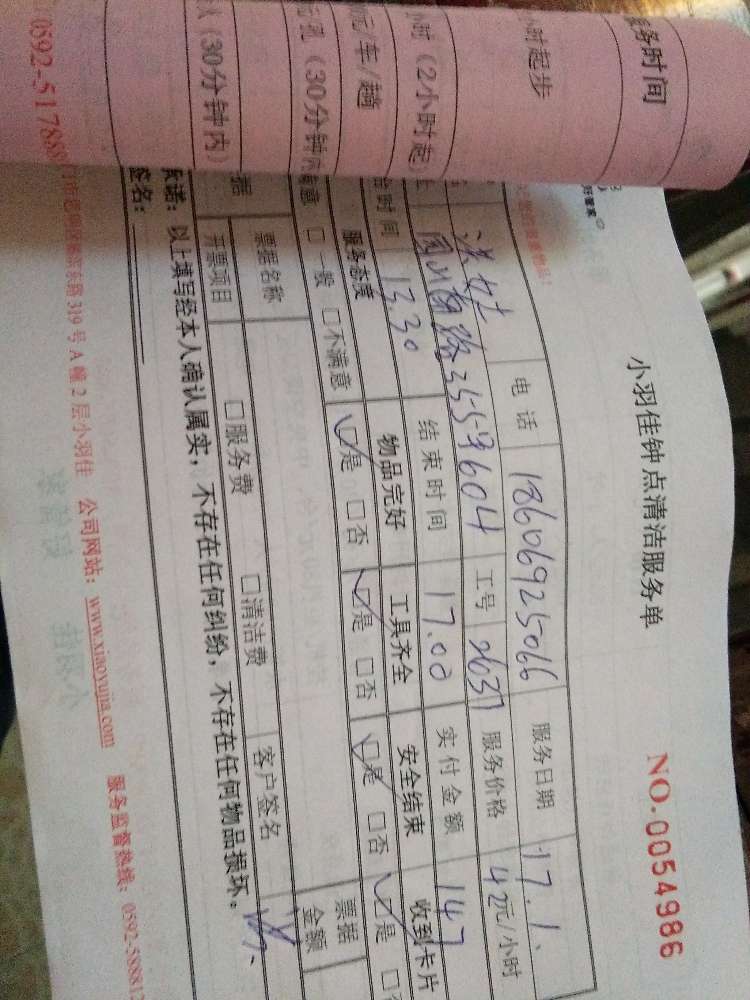 务时间
小时起步
小时（2小时起）
元/车/趟
孔（30分钟内
（30分钟内）
0592-51788
小羽佳钟点清洁服务单
NO.0054986
电话 18606925066 服务日期 17.1.
路355号604 工号 2637 服务价格 42元/小时
时间 13.30 结束时间 17.00 实付金额 147
服务态度 物品完好 工具齐全 安全结束 收到卡片
满意 □一般 □不满意 ☑是 □否 ☑是 □否 ☑是 □否 ☑是 □否
票据名称 票据金额
开票项目 □服务费 □清洁费 客户签名
承诺：以上填写经本人确认属实，不存在任何纠纷，不存在任何物品损坏。
签名：
东路319号A幢2层小羽佳 公司网站：www.xiaoyujia.com 服务监督热线：0592-588812